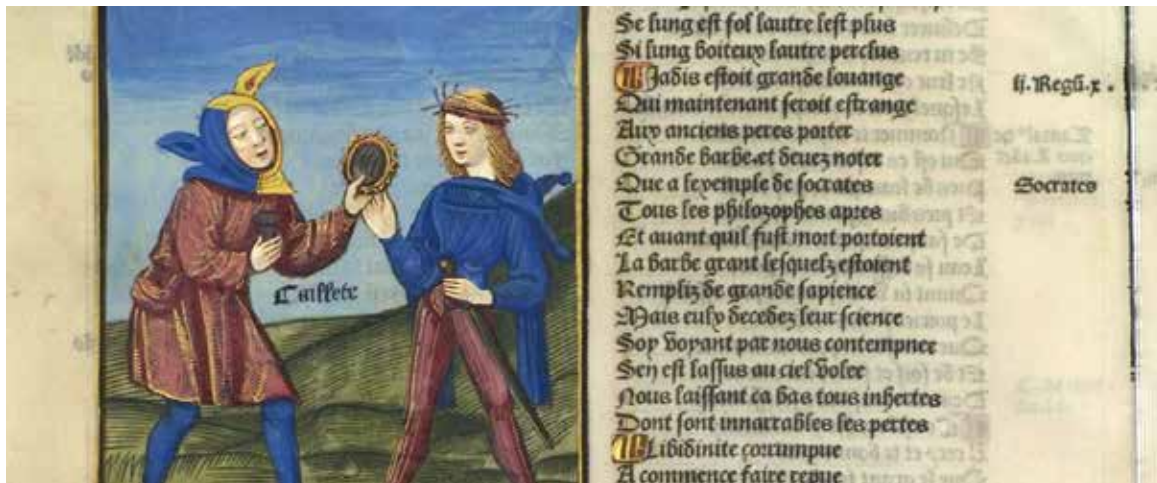 Caillete
Se lung est fol lautre lest plus
Si lung boiteux lautre perclus
Jadis estoit grande louange
ii. Regū.x.
Qui maintenant seroit estrange
Aux anciens peres porter
Grande barbe.et devez noter
Que a lexemple de socrates
Socrates
Tous les philozophes apres
Et avant quil fust mort portoient
La barbe grant lesquelz estoient
Rempliz de grande sapience
Mais eulx decedez leur science
Soy voyant par nous contempnee
Sen est lassus au ciel volee
Nous laissant ca bas tous inhertes
Dont sont innarrables les pertes
Libidinite corrumpue
A commence faire repue